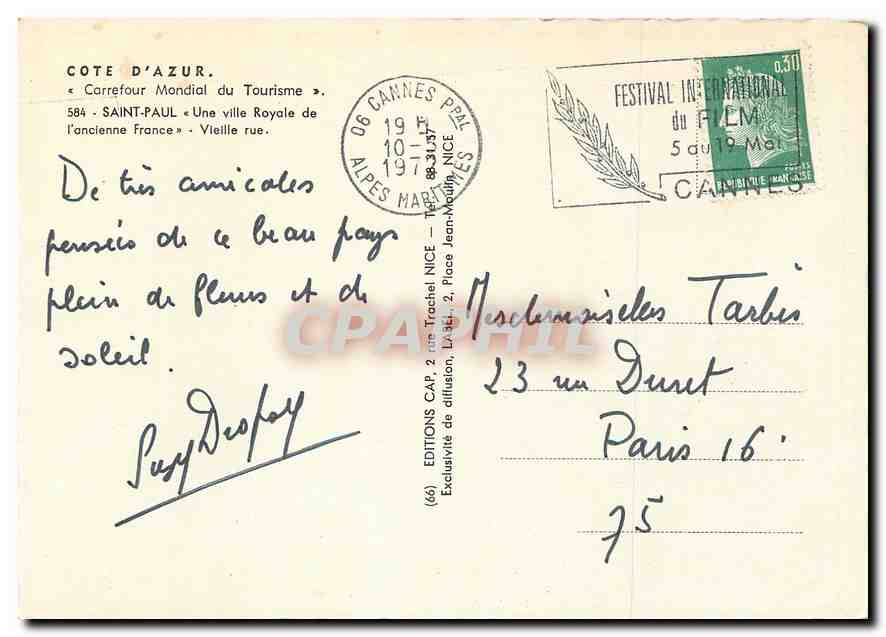 COTE D'AZUR.
« Carrefour Mondial du Tourisme ».
584 - SAINT-PAUL « Une ville Royale de
l'ancienne France » - Vieille rue.
De très amicales
pensées de ce beau pays
plein de fleurs et de
soleil.
(66) EDITIONS CAP, 2 rue Trachel NICE — Tél. 88.31.57
Exclusivité de diffusion, LABEL, 2, Place Jean-Moulin, NICE
06 CANNES PPAL
19 H
10-5
197
ALPES MARITIMES
FESTIVAL INTERNATIONAL
du FILM
5 au 19 Mai
CANNES
0,30
POSTES
REPUBLIQUE FRANÇAISE
CPAPHIL
Mesdemoiselles Tarbès
23 rue Duret
Paris 16.
75